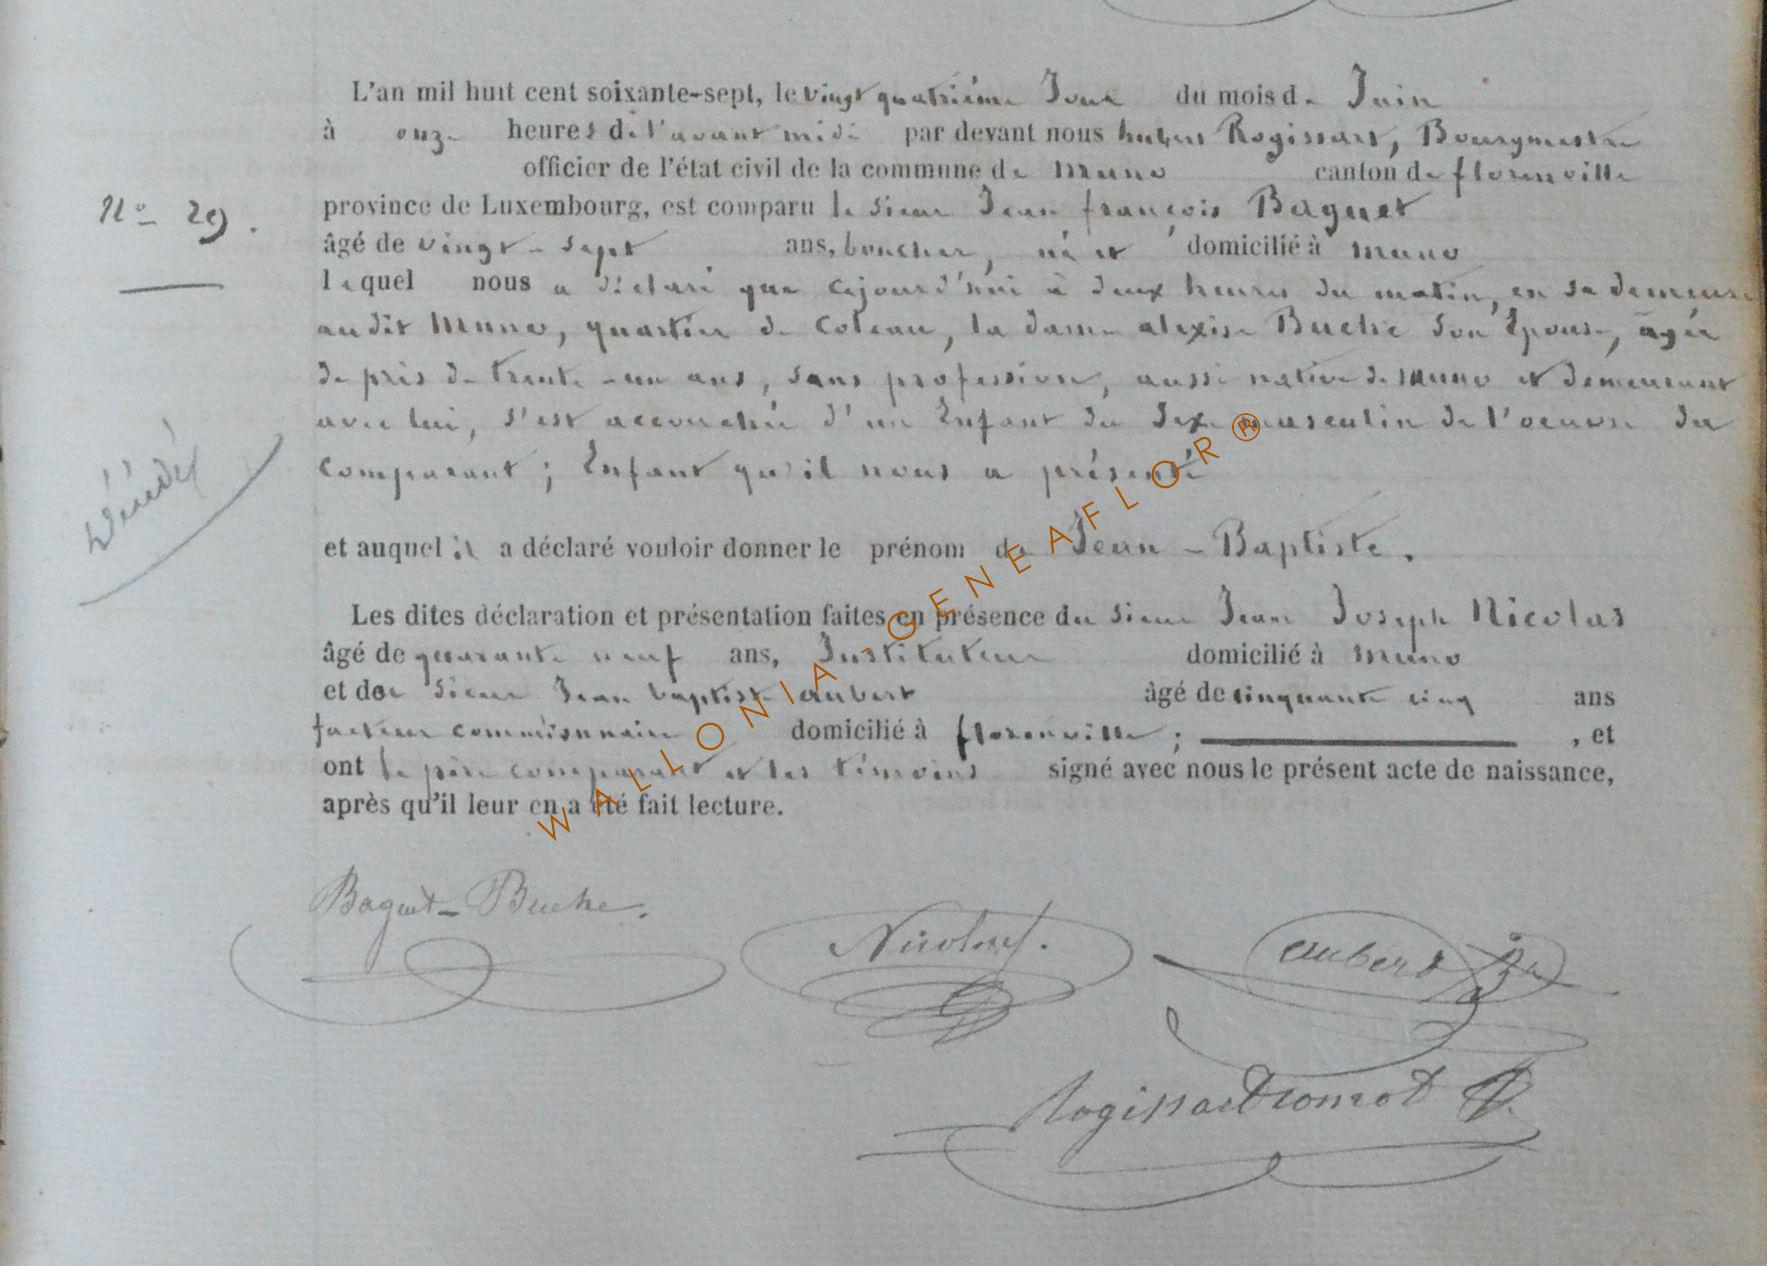 L'an mil huit cent soixante-sept, le vingt quatrième Jour du mois de Juin
à onze heures de l'avant midi par devant nous hubert Rogissart, Bourgmestre
officier de l'état civil de la commune de Muno canton de florenville
N° 29.
province de Luxembourg, est comparu le sieur Jean françois Baguet
âgé de vingt-sept ans, boucher, né et domicilié à Muno
lequel nous a déclaré que cejourd'hui à deux heures du matin, en sa demeure
audit Muno, quartier de Coteau, la dame alexise Buche son Épouse, âgée
de près de trente-un ans, sans profession, aussi native de Muno et demeurant
avec lui, s'est accouchée d'un Enfant du sexe masculin de l'oeuvre du
comparant ; Enfant qu'il nous a présenté
et auquel il a déclaré vouloir donner le prénom de Jean-Baptiste.
Les dites déclaration et présentation faites en présence du sieur Jean Joseph Nicolas
âgé de quarante neuf ans, Instituteur domicilié à Muno
et de sieur Jean baptiste aubert âgé de cinquante cinq ans
facteur commissionnaire domicilié à florenville ; , et
ont le père comparant et les témoins signé avec nous le présent acte de naissance,
après qu'il leur en a été fait lecture.
WALLONIA-GENEAFLOR®
Baguet-Buche.
Nicolas.
aubert